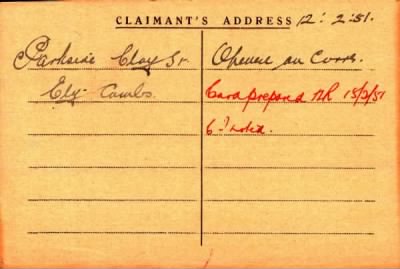 CLAIMANT'S ADDRESS 12: 2:51.
Parkside Clay St.
Ely Cambs.
Opened on Corres.
Card prepared NR 15/2/51